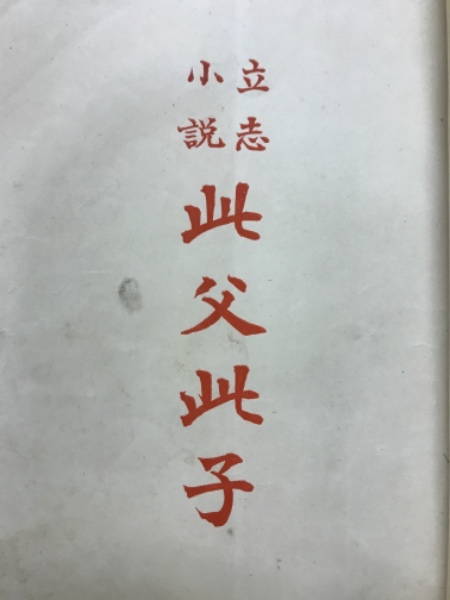 立志
小説
此父此子